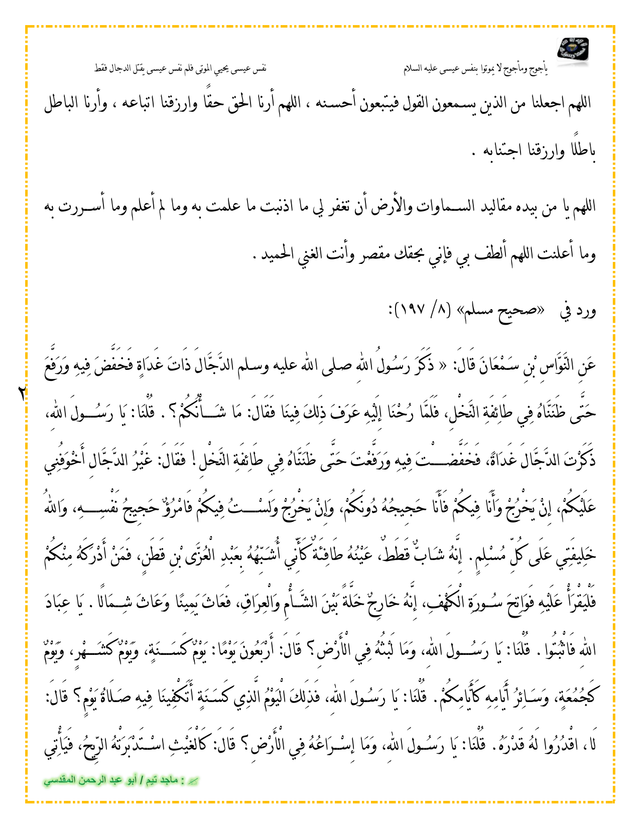 يأجوج ومأجوج لا يموتوا بنفس عيسى عليه السلام نفس عيسى يحيي الموتى فلم نفس عيسى يقتل الدجال فقط
اللهم اجعلنا من الذين يسمعون القول فيتبعون أحسنه ، اللهم أرنا الحق حقًا وارزقنا اتباعه ، وأرنا الباطل
باطلًا وارزقنا اجتنابه .
اللهم يا من بيده مقاليد السماوات والأرض أن تغفر لي ما اذنبت ما علمت به وما لم أعلم وما أسررت به
وما أعلنت اللهم ألطف بي فإني بحقك مقصر وأنت الغني الحميد .
ورد في «صحيح مسلم» (٨/ ١٩٧):
عَنِ النَّوَّاسِ بْنِ سَمْعَانَ قَالَ: « ذَكَرَ رَسُولُ اللهِ صلى الله عليه وسلم الدَّجَّالَ ذَاتَ غَدَاةٍ فَخَفَّضَ فِيهِ وَرَفَّعَ
٢
حَتَّى ظَنَنَّاهُ فِي طَائِفَةِ النَّخْلِ، فَلَمَّا رُحْنَا إِلَيْهِ عَرَفَ ذَلِكَ فِينَا فَقَالَ: مَا شَأْنُكُمْ؟ . قُلْنَا: يَا رَسُولَ اللهِ،
ذَكَرْتَ الدَّجَّالَ غَدَاةً، فَخَفَّضْتَ فِيهِ وَرَفَّعْتَ حَتَّى ظَنَنَّاهُ فِي طَائِفَةِ النَّخْلِ! فَقَالَ: غَيْرُ الدَّجَّالِ أَخْوَفُنِي
عَلَيْكُمْ، إِنْ يَخْرُجْ وَأَنَا فِيكُمْ فَأَنَا حَجِيجُهُ دُونَكُمْ، وَإِنْ يَخْرُجْ وَلَسْتُ فِيكُمْ فَامْرُؤٌ حَجِيجُ نَفْسِهِ، وَاللهُ
خَلِيفَتِي عَلَى كُلِّ مُسْلِمٍ . إِنَّهُ شَابٌّ قَطَطٌ، عَيْنُهُ طَافِئَةٌ كَأَنِّي أُشَبِّهُهُ بِعَبْدِ الْعُزَّى بْنِ قَطَنٍ، فَمَنْ أَدْرَكَهُ مِنْكُمْ
فَلْيَقْرَأْ عَلَيْهِ فَوَاتِحَ سُورَةِ الْكَهْفِ، إِنَّهُ خَارِجٌ خَلَّةً بَيْنَ الشَّأْمِ وَالْعِرَاقِ، فَعَاثَ يَمِينًا وَعَاثَ شِمَالًا . يَا عِبَادَ
اللهِ فَاثْبُتُوا . قُلْنَا: يَا رَسُولَ اللهِ، وَمَا لَبْثُهُ فِي الْأَرْضِ؟ قَالَ: أَرْبَعُونَ يَوْمًا: يَوْمٌ كَسَنَةٍ، وَيَوْمٌ كَشَهْرٍ، وَيَوْمٌ
كَجُمُعَةٍ، وَسَائِرُ أَيَّامِهِ كَأَيَّامِكُمْ . قُلْنَا: يَا رَسُولَ اللهِ، فَذَلِكَ الْيَوْمُ الَّذِي كَسَنَةٍ أَتَكْفِينَا فِيهِ صَلَاةُ يَوْمٍ؟ قَالَ:
لَا، اقْدُرُوا لَهُ قَدْرَهُ . قُلْنَا: يَا رَسُولَ اللهِ، وَمَا إِسْرَاعُهُ فِي الْأَرْضِ؟ قَالَ: كَالْغَيْثِ اسْتَدْبَرَتْهُ الرِّيحُ، فَيَأْتِي
: ماجد تيم / أبو عبد الرحمن المقدسي